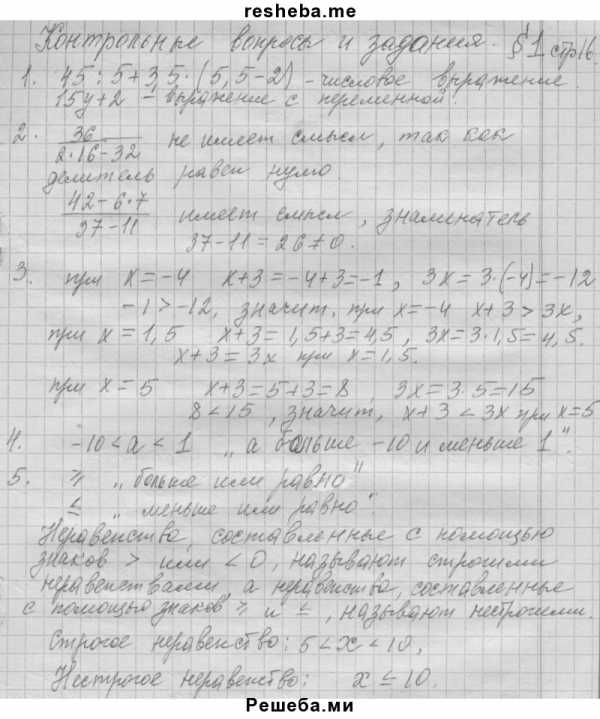 resheba.me
Контрольные вопросы и задания. §1 стр16.
1. 45:5+3,5·(5,5-2) - числовое выражение
15y+2 - выражение с переменной.
2. 36/(2·16-32) не имеет смысл, так как
делитель равен нулю.
(42-6·7)/(37-11) имеет смысл, знаменатель
37-11=26≠0.
3. при x=-4 x+3=-4+3=-1, 3x=3·(-4)=-12
-1>-12, значит, при x=-4 x+3>3x,
при x=1,5 x+3=1,5+3=4,5, 3x=3·1,5=4,5.
x+3=3x при x=1,5.
при x=5 x+3=5+3=8, 3x=3·5=15
8<15, значит, x+3<3x при x=5
4. -10<a<1 „а больше -10 и меньше 1".
5. ⩾ „больше или равно"
≤ „меньше или равно".
Неравенства, составленные с помощью
знаков > или <0, называют строгими
неравенствами, а неравенства, составленные
с помощью знаков ⩾ и ≤, называют нестрогими.
Строгое неравенство: 5<x<10,
Нестрогое неравенство: x≤10.
Решеба.ми